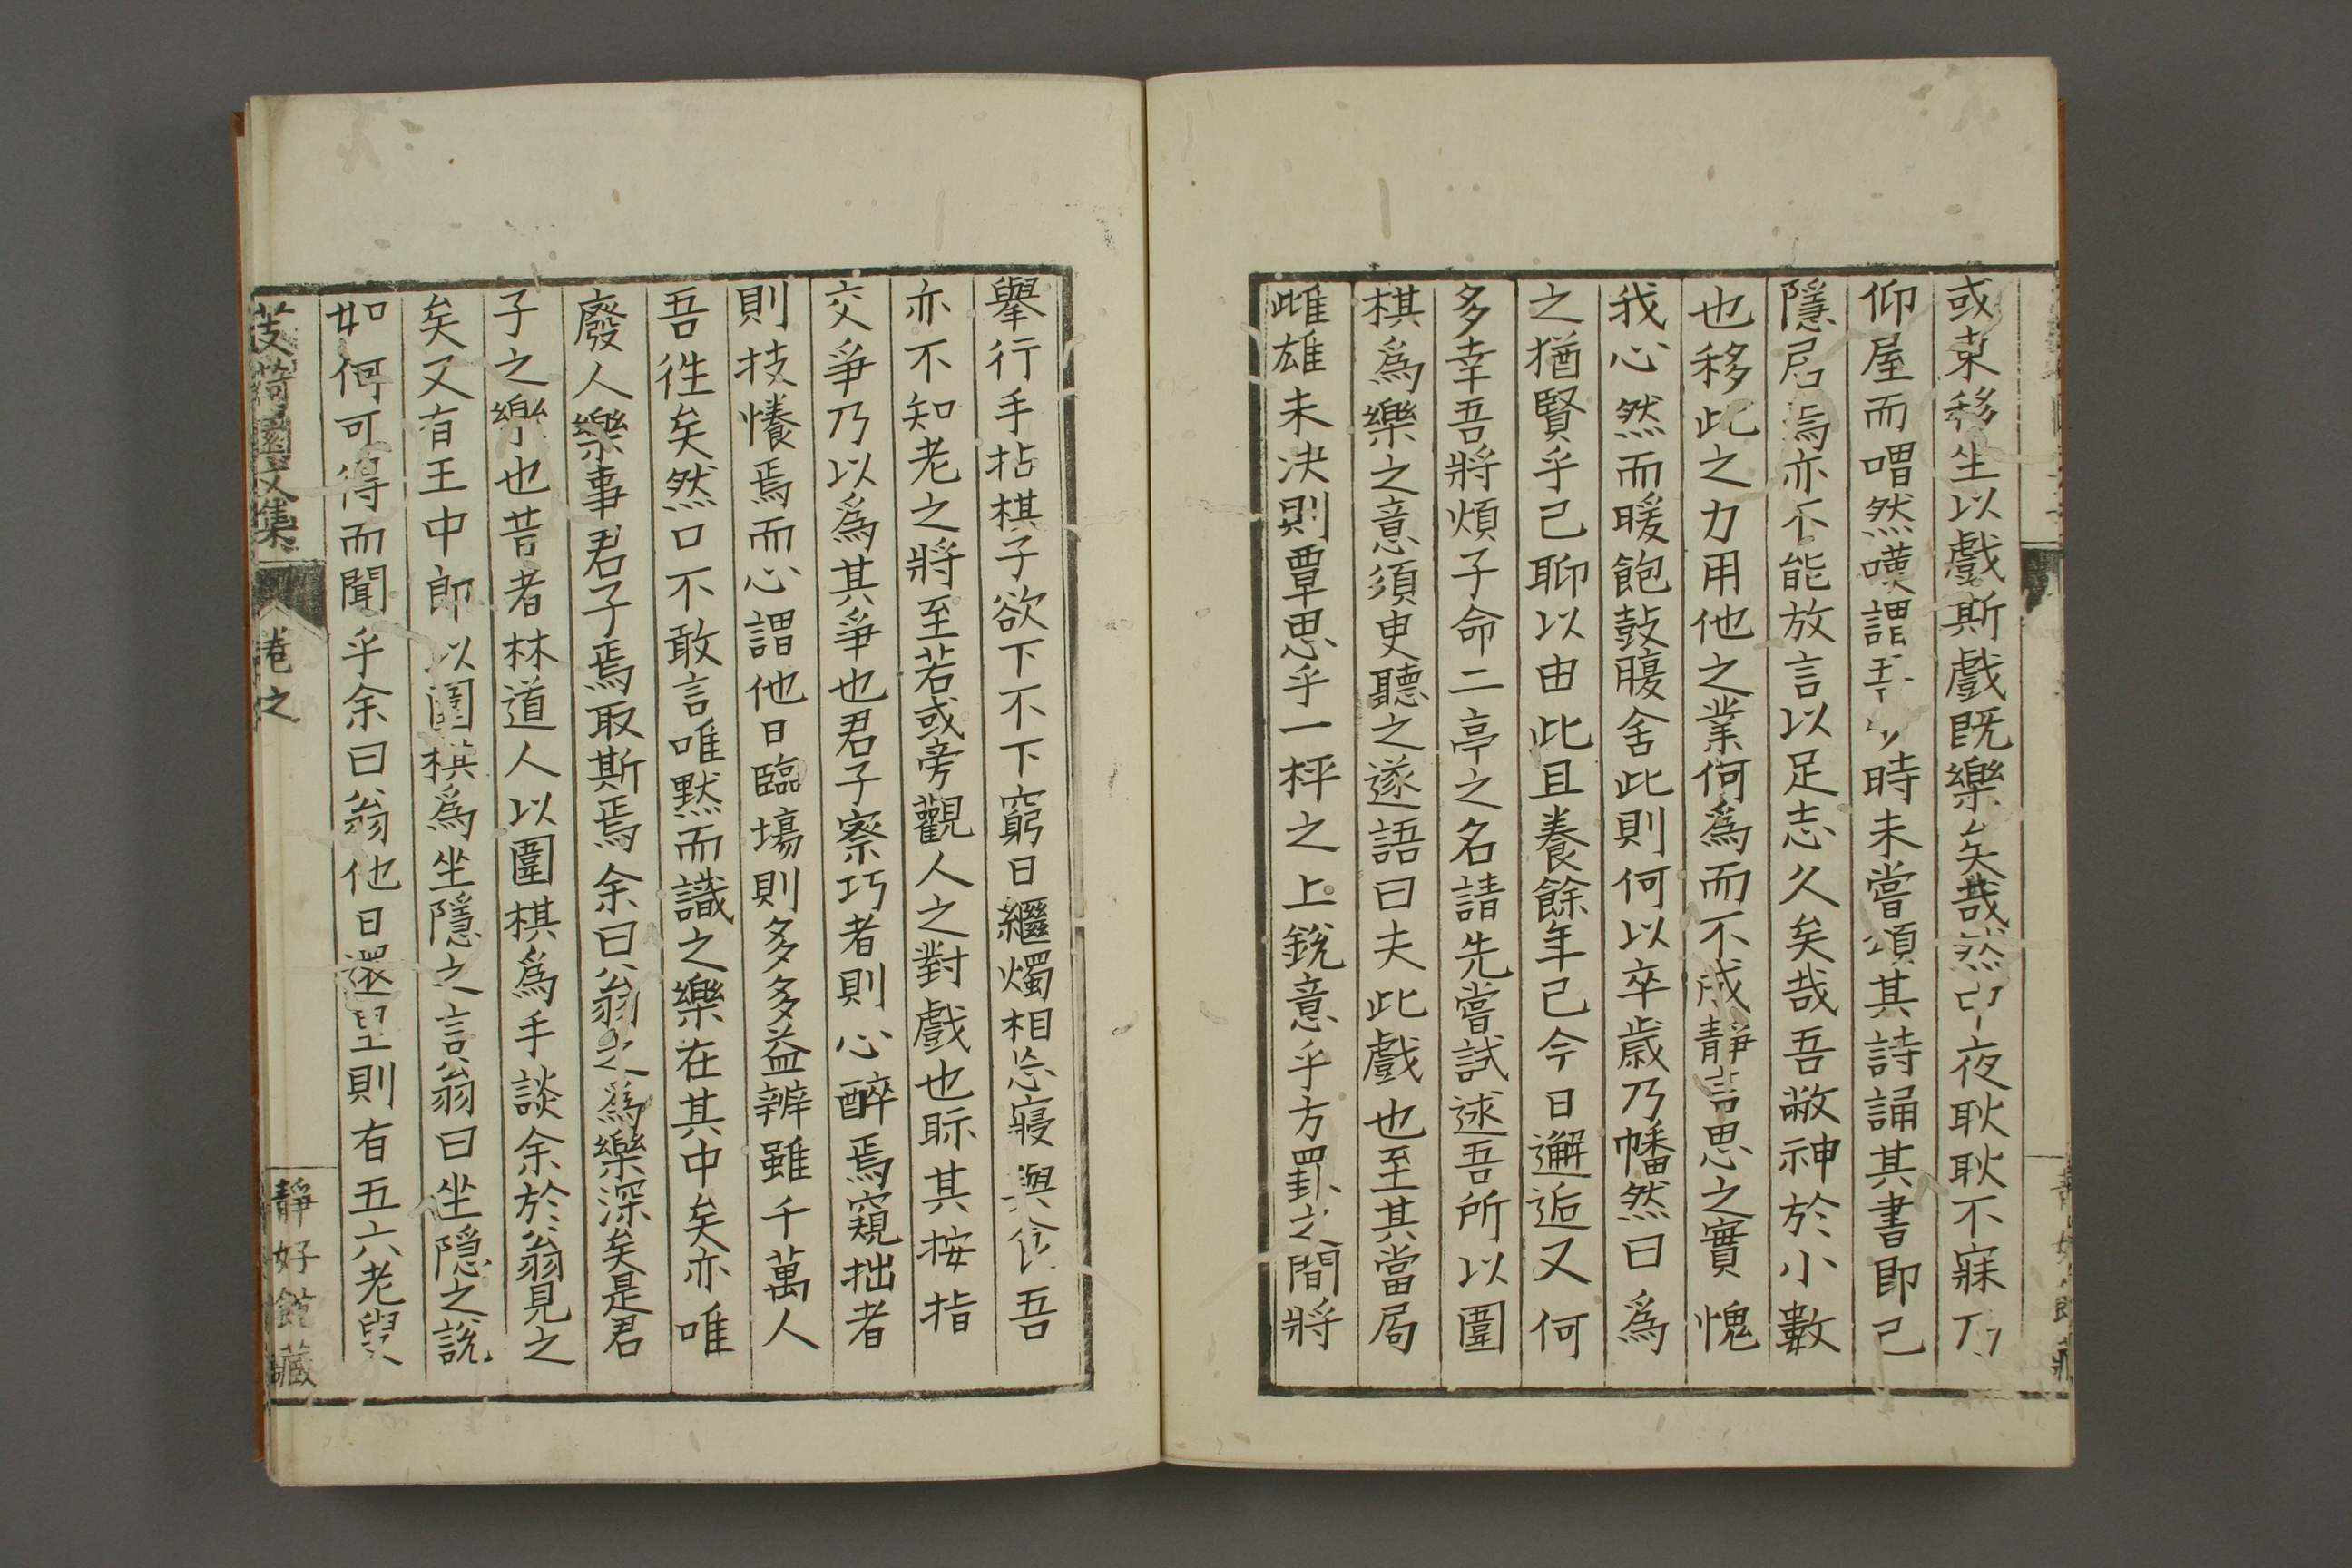 或束移坐以戲斯戲既樂矣哉然中夜耿耿不寐乃
仰屋而喟然嘆謂時未嘗頌其詩誦其書即己
隱居焉亦不能放言以足志久矣哉吾敝神於小數
也移此之力用他之業何爲而不成靜言思之實愧
我心然而暖飽鼓腹舍此則何以卒歲乃幡然曰爲
之猶賢乎己聊以由此且養餘年己今日邂逅又何
多幸吾將煩子命二亭之名請先嘗試逑吾所以圍
棋爲樂之意須叓聽之遂語曰夫此戲也至其當局
雌雄未決則覃思乎一枰之上銳意乎方罫之間將
擧行手拈棋子欲下不下窮日繼燭相忘寢與食吾
亦不知老之將至若或旁觀人之對戲也眎其按指
交爭乃以爲其爭也君子察巧者則心醉焉窺拙者
則技懩焉而心謂他日臨塲則多多益辨雖千萬人
吾徃矣然口不敢言唯默而識之樂在其中矣亦唯
廢人樂事君子焉取斯焉余曰翁之爲樂深矣是君
子之樂也昔者林道人以圍棋爲手談余於翁見之
矣又有王中郎以圍棋爲坐隱之言翁曰坐隠之說
如何可得而聞乎余曰翁他日還里則有五六老叟
芰荷園文集 卷之 靜好館藏